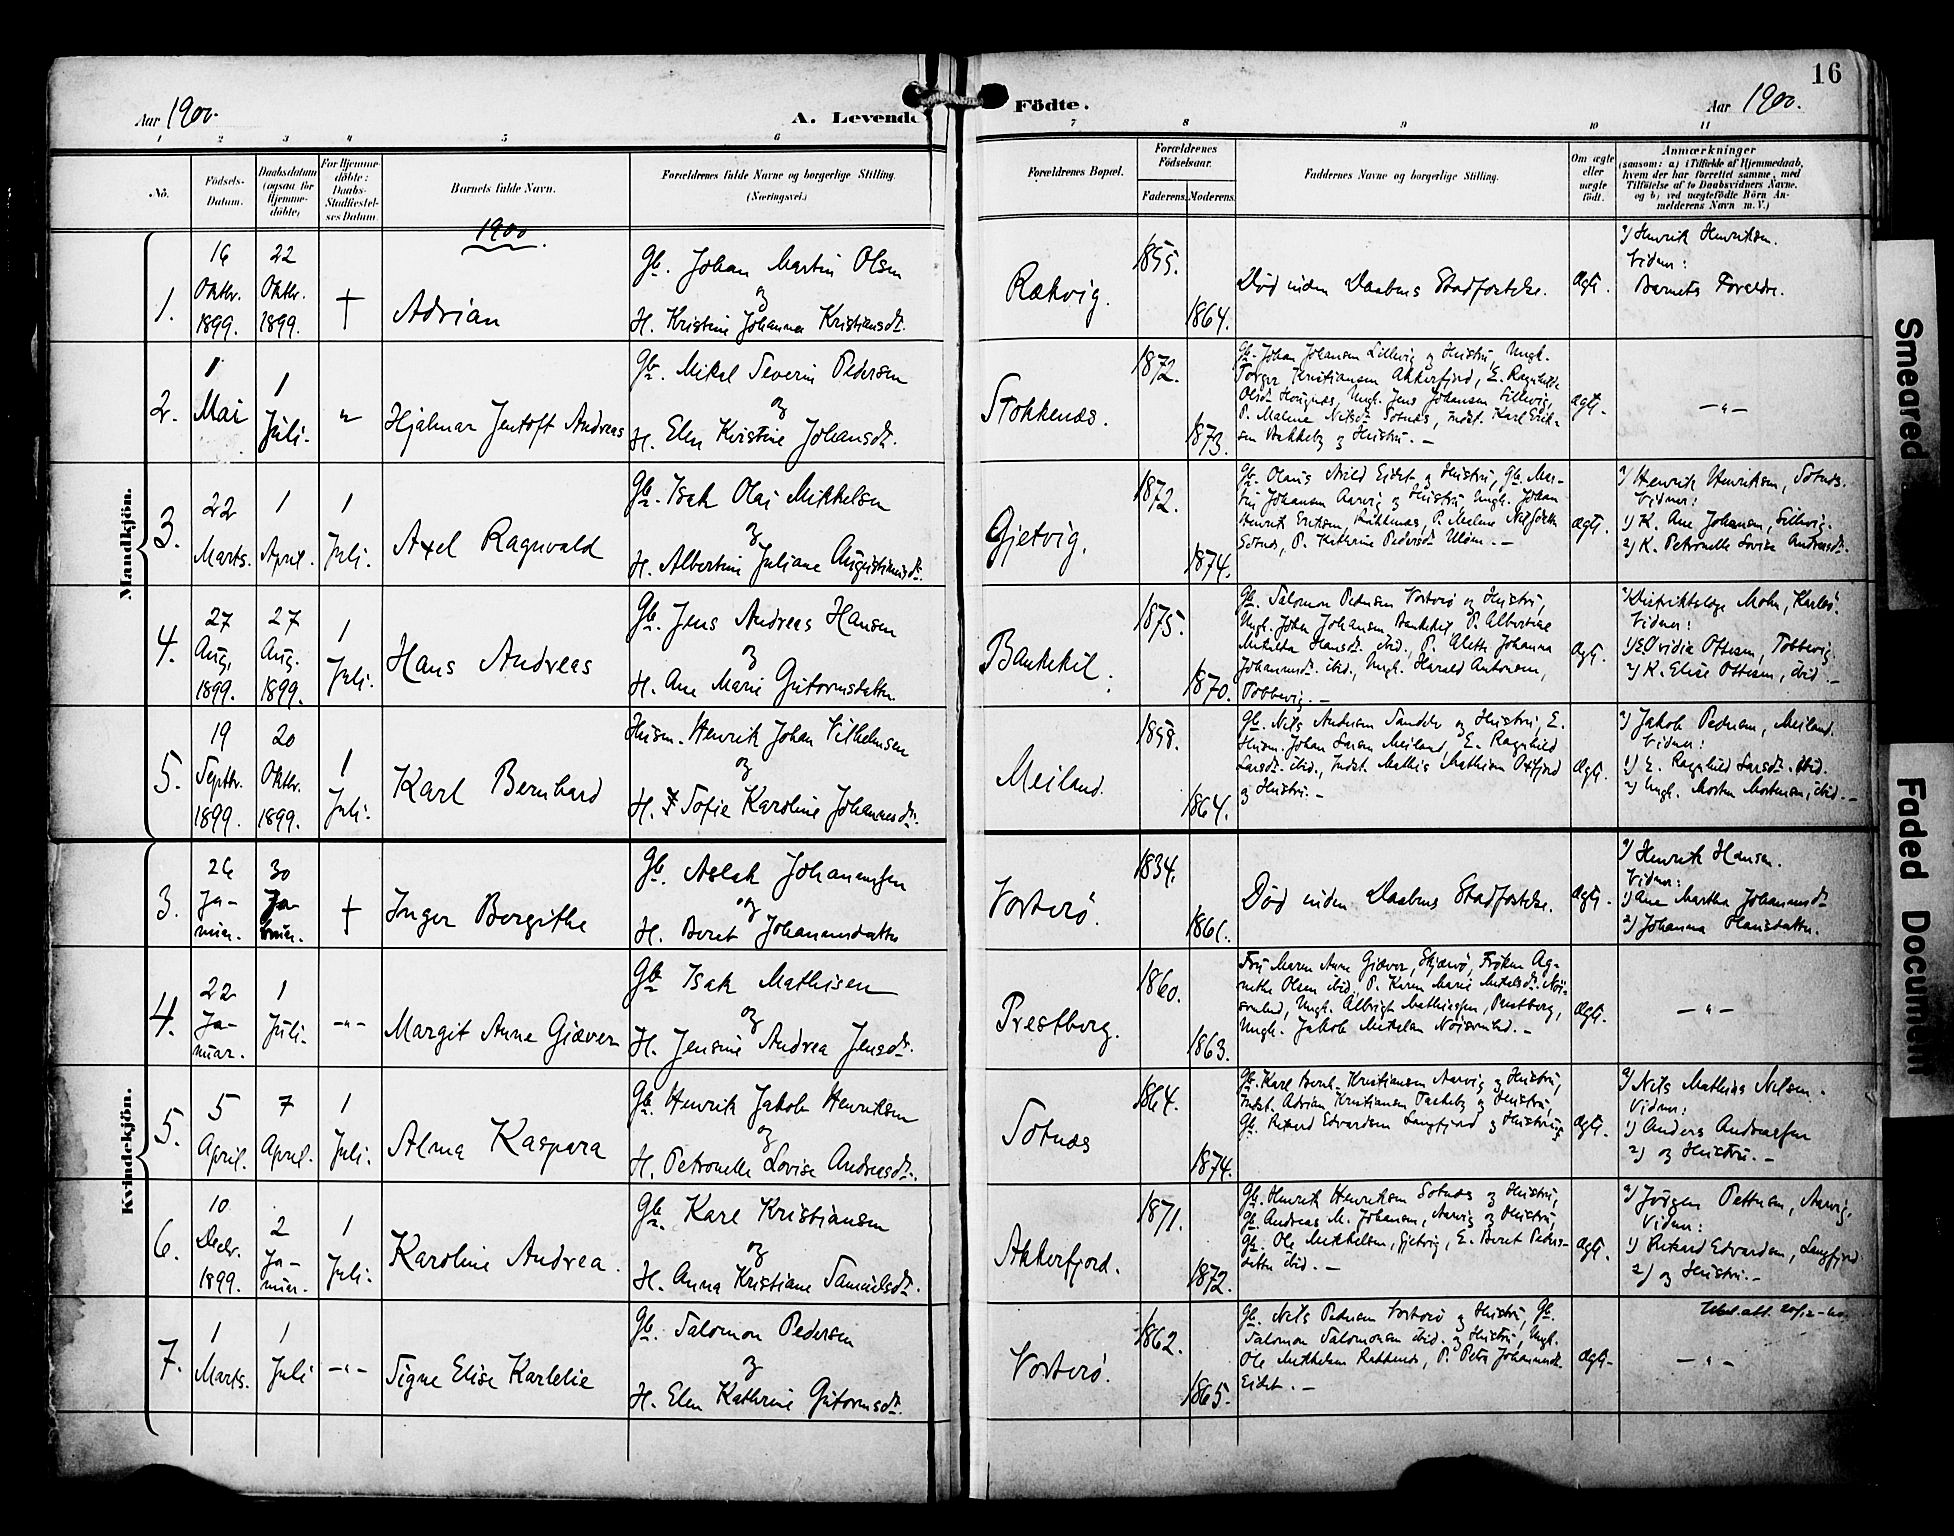 16
Aar 1900.
A. Levende Födte.
Aar 1900.
1 2 3 4 5 6 7 8 9 10 11
No.
Födsels-
Datum.
Daabsdatum
(ogsaa for
Hjemme-
döbte)
For Hjemme-
döbte:
Daabs-
Stadfæstel-
ses Datum.
Barnets fulde Navn.
Forældrenes fulde Navne og borgerlige Stilling.
(Næringsvei.)
Forældrenes Bopæl.
Forældrenes
Födselsaar.
Faderens. Moderens.
Faddernes Navne og borgerlige Stilling.
Om ægte
eller
uægte
födt.
Anmærkninger
(saasom: a) i Tilfælde af Hjemmedaab,
hvem der har forrettet samme, med
Tilföielse af to Daabsvidners Navne,
og b) ved uægtefödte Börn An-
melderens Navn m. V.)
1900.
Mandkjön.
1.
16
Oktbr.
1899.
22
Oktbr.
1899.
†
Adrian
Gb. Johan Martin Olsen
og
H. Kristine Johanna Kristiansdr.
Rækvig.
1855.
1864.
Död inden Daabens Stadfæstelse.
Ægte.
a) Henrik Henriksen.
Vidner:
Barnets Foreldre.
2.
1
Mai
1
Juli.
"
Hjalmar Jentoft Andreas
Gb. Mikal Severin Pedersen
og
H. Elen Kristine Johansdr.
Stokkenæs.
1872.
1873.
Gb. Johan Johansen Lillevig og Hustru, Ungk.
Torger Kristiansen Akkerfjord, E. Ragnhild
Ungk. Jens Johansen Lillevig,
P. Malene Nilsdr. Sotnæs, Indst. Karl Erik-
sen Bakkeby og Hustru. —
Ægte.
— " —
3.
22
Marts.
1
April.
1
Juli.
Axel Ragnvald
Gb. Isak Olai Mikkelsen
og
H. Albertine Juliane Augustinusdr.
Gjetvig.
1872.
1874.
Gb. Olaus Arild Eidet og Hustru, Gb. Mar-
tin Johansen Aarvig og Hustru, Ungk. Johan
Henrik Eriksen, P. Malene Nilsdatter
Sotnæs, P. Kathrine Pedersdr. —
Ægte.
a) Henrik Henriksen, Sotnæs.
Vidner:
1) K. Ane Johansen, Lillevig.
2) K. Petronelle Lovise Andreasdr.
4.
27
Aug.
1899.
27
Aug.
1899.
1
Juli.
Hans Andreas
Gb. Jens Andreas Hansen
og
H. Ane Marie Gutormsdatter
Bankekil.
1875.
1870.
Gb. Salomon Pedersen Vorterö og Hustru,
Ungk. Johan Johansen Bankekil, P. Albertine
Mathilda Hansdr. ibid., P. Aletta Johanna
Johannesdr. ibid., Ungk. Harald Antonsen,
Tobbevig. —
Ægte.
a) Distriktslæge Mohn, Karlsö.
Vidner:
1) E. Ovidia Ottesen, Tobbevig.
2) K. Elise Ottesen, ibid. —
5.
19
Septbr.
1899.
20
Oktbr.
1899.
1
Juli.
Karl Bernhard
Husm. Henrik Johan Vilhelmsen
og
H. Sofie Karoline Johannesdr.
Meiland.
1858.
1864.
Gb. Nils Andersen og Hustru, E.
Husm. Johan Larsen Meiland, E. Ragnhild
Larsdr. ibid., Indst. Mathis Mathisen Oxfjord
og Hustru. —
Ægte.
a) Jakob Pedersen, Meiland.
Vidner:
1) E. Ragnhild Larsdr. ibid.
2) Ungk. Morten Mortensen, ibid. —
Kvindekjön.
3.
26
Ja-
nuar.
30
Ja-
nuar.
†
Inger Bergithe
Gb. Aslak Johannessen
og
H. Beret Johannesdatter
Vorterö.
1834.
1861.
Död inden Daabens Stadfæstelse.
Ægte.
a) Henrik Hansen.
Vidner:
1) Ane Martha Johannesdr.
2) Johanna Hansdatter.
4.
22
Ja-
nuar.
1
Juli.
-"-
Margit Anna Giæver
Gb. Isak Mathisen
og
H. Jensine Andrea Jensdr.
Prestberg.
1860.
1863.
Fru Maren Anna Giæver, Skjærvö, Fröken Ag-
nethe Olsen ibid., P. Karen Marie Mikelsdr. Nöi-
somhed, Ungk. Albrigt Mathiassen, Prestberg,
Ungk. Jakob Mikelsen Nöisomhed. —
Ægte.
— " —
5.
5
April.
7
April.
1
Juli.
Alma Kaspara
Gb. Henrik Jakob Henriksen
og
H. Petronelle Lovise Andreasdr.
Sotnæs
1864.
1874.
Gb. Karl Bernh. Kristiansen Aarvig og Hustru,
Indst. Adrian Kristiansen og Hustru,
Gb. Rikard Edvardsen Langfjord og Hustru.
Ægte.
a) Nils Mathias Nilsen.
Vidner:
1) Anders Andreassen
2) og Hustru. —
6.
10
Decbr.
1899.
2
Ja-
nuar.
1
Juli.
Karoline Andrea.
Gb. Karl Kristiansen
og
H. Anna Kristiane Samuelsdr.
Akkerfjord.
1871.
1872.
Gb. Henrik Henriksen Sotnæs og Hustru,
Gb. Andreas M. Johansen, Aarvig og Hustru,
Gb. Ole Mikkelsen, Gjetvig, E. Beret Peders-
datter ibid. —
Ægte.
a) Jörgen Pettersen, Aarvig.
Vidner:
1) Rikard Edvardsen, Langfjord
2) og Hustru. —
7.
1
Marts.
1
Juli
-"-
Signe Elise Karlelie
Gb. Salomon Pedersen
og
H. Elen Kathrine Gutormsdr.
Vorterö.
1862.
1865.
Gb. Nils Pedersen Vorterö og Hustru, Gb.
Salomon Salomonsen ibid. og Hustru, Ungk.
Ole Mikkelsen P. Petra Johannesdr.
Eidet. —
Ægte.
— " —
Smeared
Faded Document